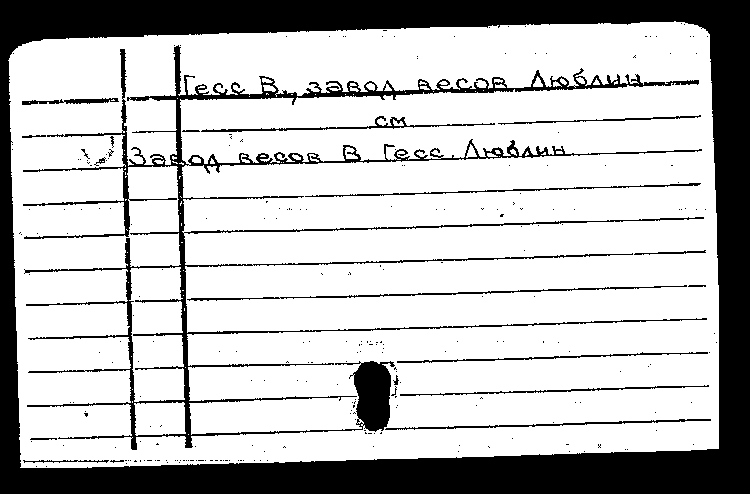 Гесс В., завод весов Люблин
см
Завод весов В. Гесс. Люблин.